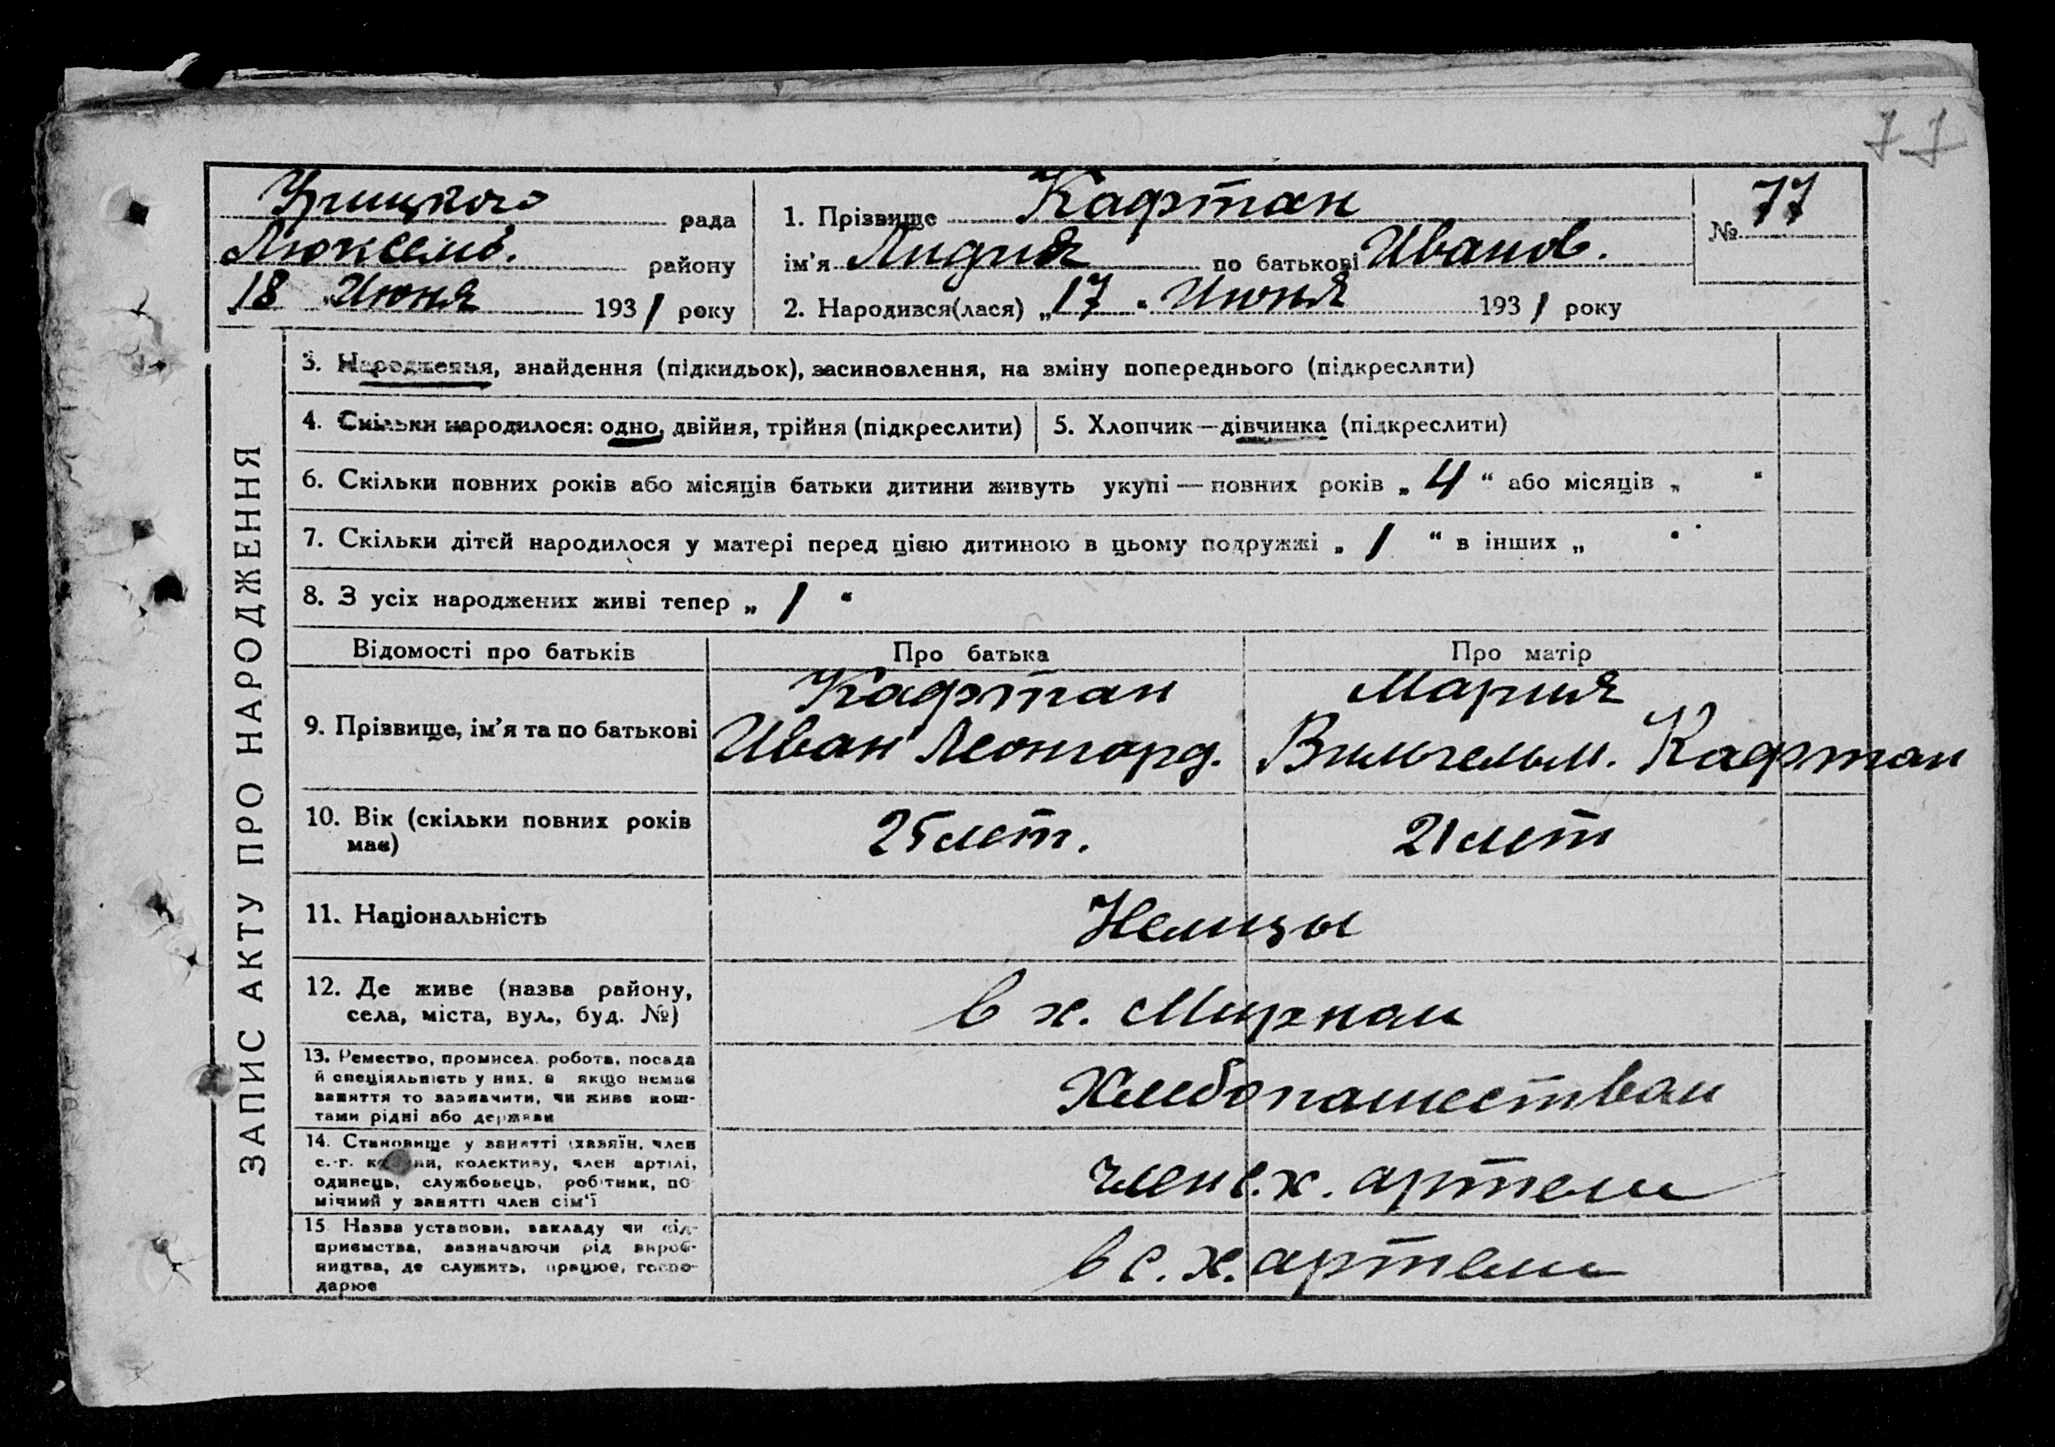 77
Урицкого рада
Люксемб. району
„18 „ Июня 1931 року
1. Прізвище Кафтан
ім'я Лидия по батькові Иванов.
2. Народився(лася) „17 “ Июня 1931 року
№ 77
ЗАПИС АКТУ ПРО НАРОДЖЕННЯ
3. Народження, знайдення (підкидьок), засиновлення, на зміну попереднього (підкреслити)
4. Скільки народилося: одно, двійня, трійня (підкреслити)
5. Хлопчик—дівчинка (підкреслити)
6. Скільки повних років або місяців батьки дитини живуть укупі — повних років „ 4 “ або місяців „ “
7. Скільки дітей народилося у матері перед цією дитиною в цьому подружжі „ 1 “ в інших „ “
8. З усіх народжених живі тепер „ 1 “
Відомості про батьків Про батька Про матір
9. Прізвище, ім'я та по батькові
Кафтан
Иван Леонгард.
Мария
Вильгельм. Кафтан
10. Вік (скільки повних років
має)
25 лет.
21 лет
11. Національність
Немцы
12. Де живе (назва району,
села, міста, вул., буд. №)
в х. Мирном
13. Ремество, промисел, робота, посада
й спеціяльність у них, а якщо немає
заняття то зазначити, чи живе кош-
тами рідні або держави
Хлебопашеством
14. Становище у занятті (хазяїн, член
с.-г. комуни, колективу, член артілі,
одинець, службовець, робітник, по
мічний у занятті член сім'ї
член с.х. артели
15 Назва установи, закладу чи під-
приємства, зазначаючи рід вироб-
ництва, де служить, працює, госпо-
дарює
в с. х. артели